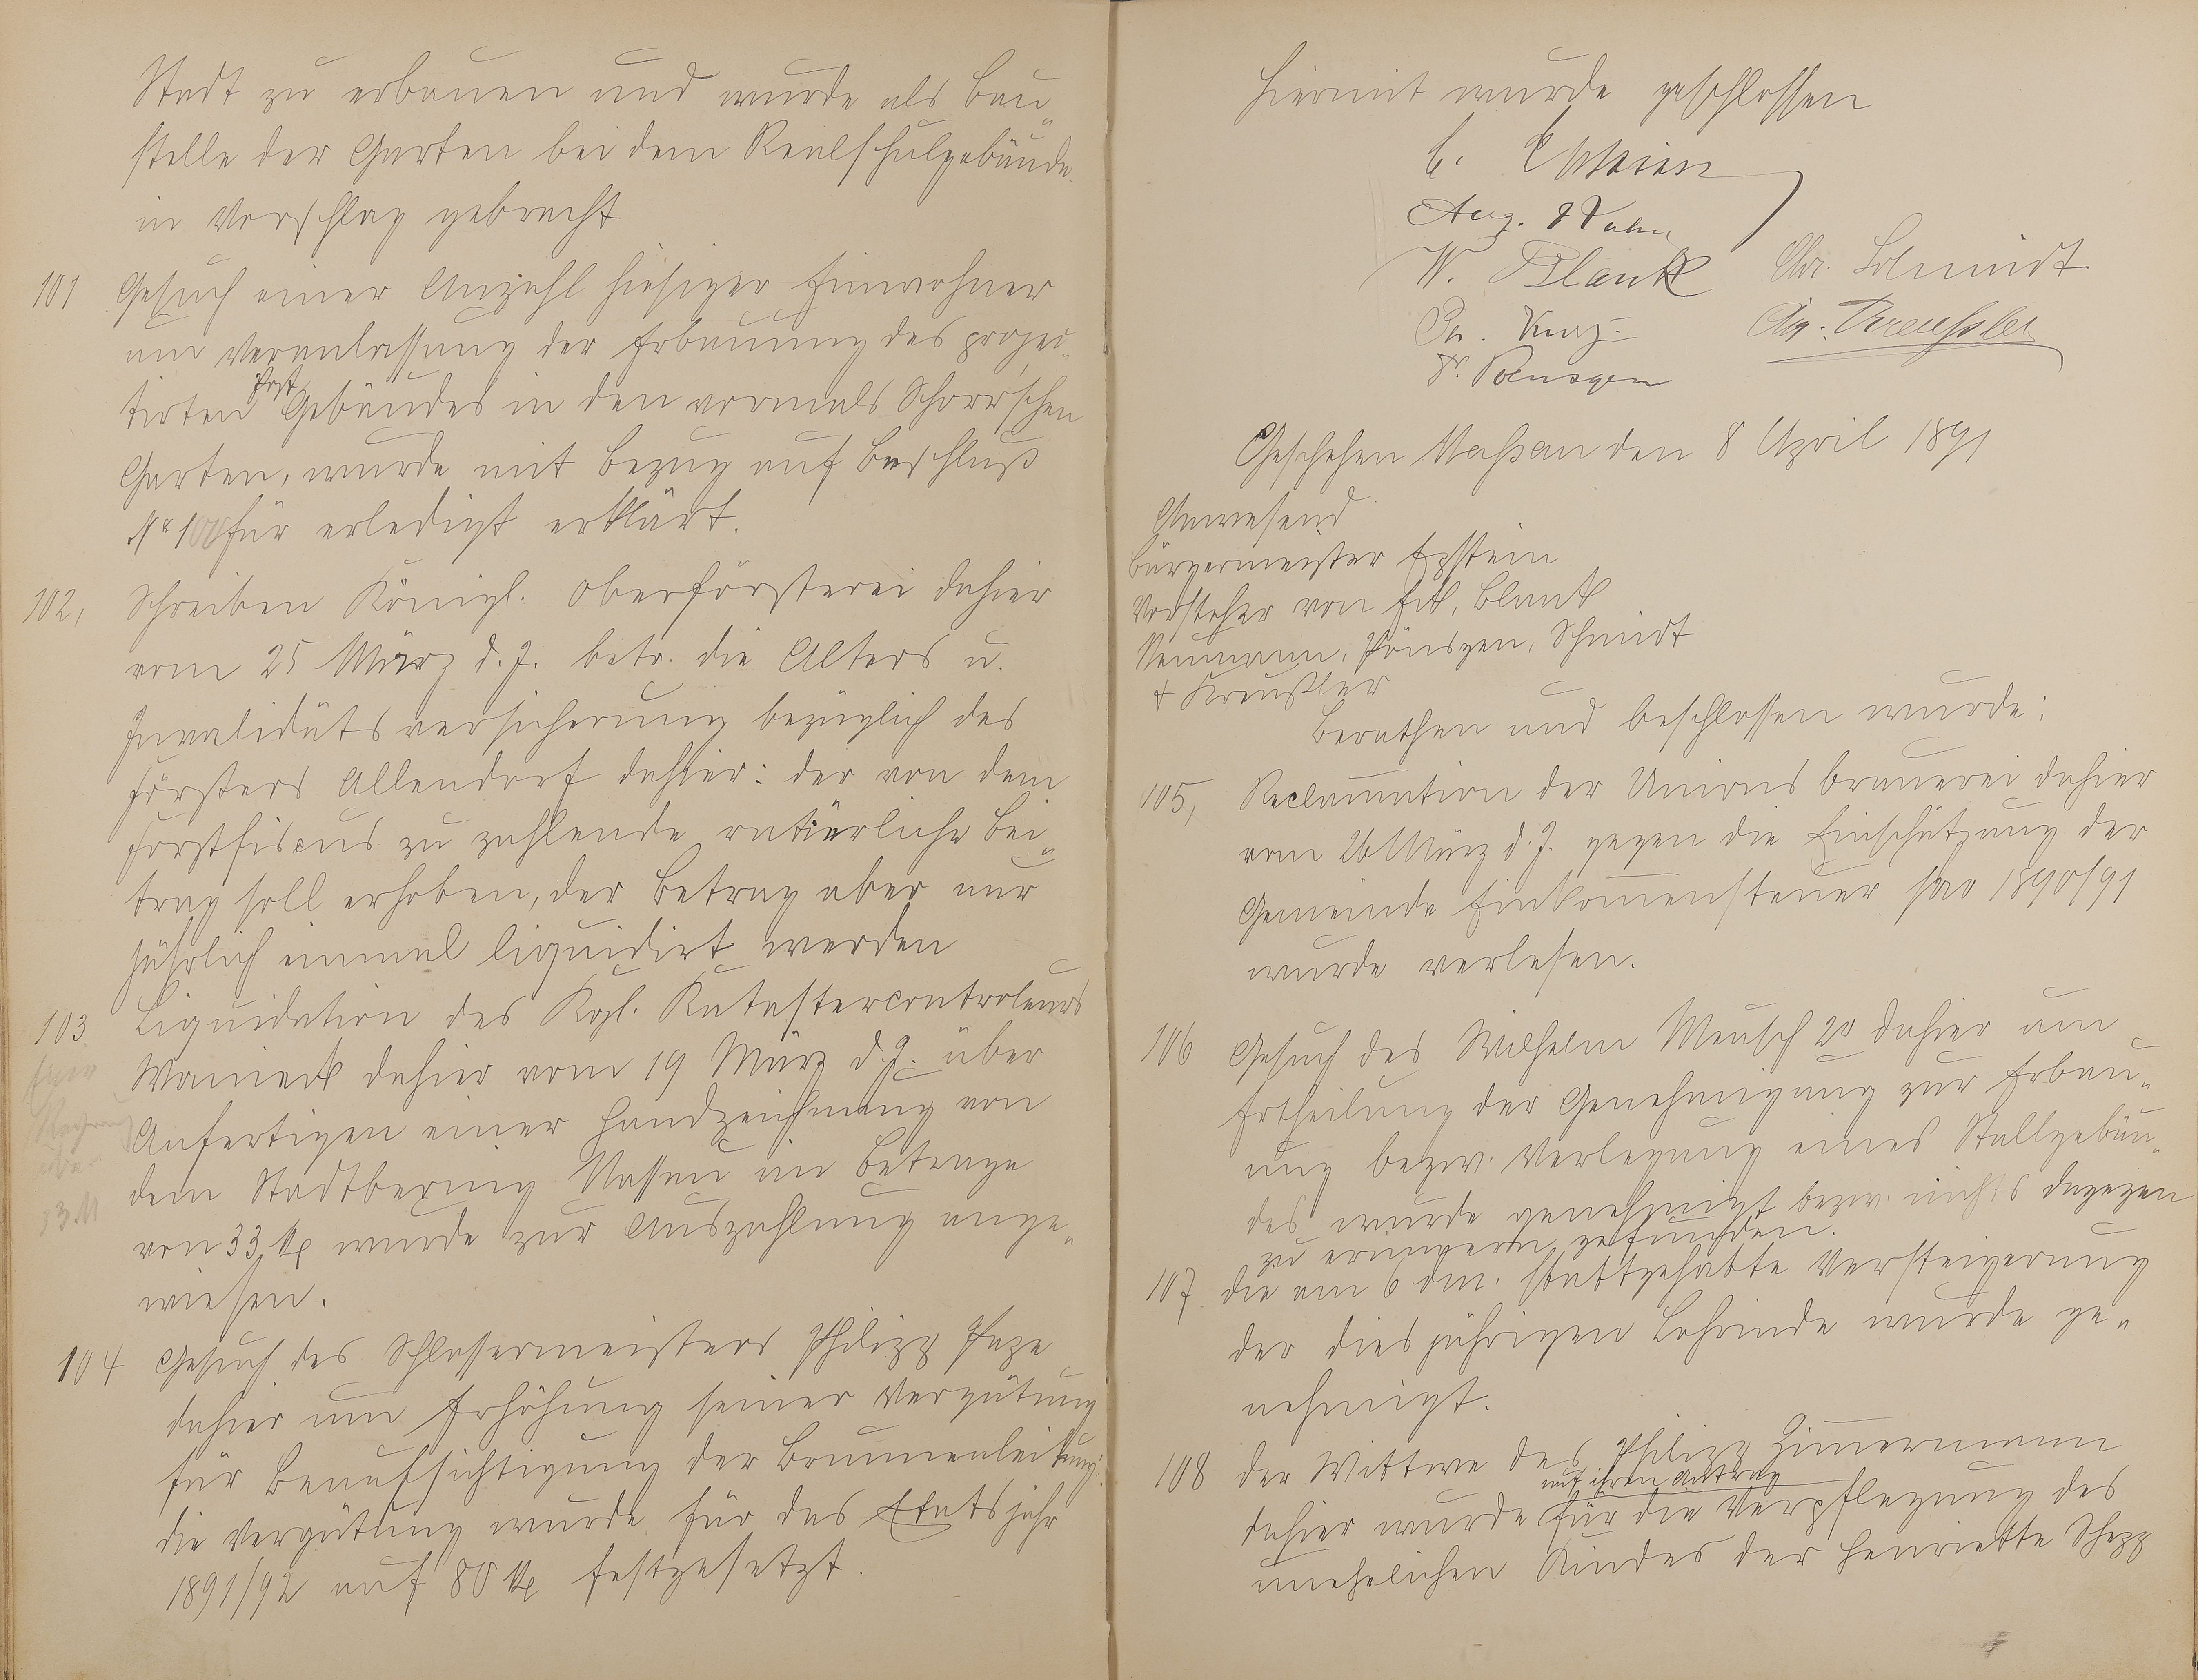 Stadt zu erbauen und wurde als Bau„
stelle der Garten bei dem Realschulgebäude
in Vorschlag gebracht
101 Gesuch einer Anzahl hiesiger Einwohner
um Veranlassung der Erbauung des projec„
tirten Post Gebäudes in den vormals Schorr'schen
Garten, wurde mit Bezug auf Beschluß
No 100 für erledigt erklärt.
102, Schreiben Königl. Oberförsterei dahier
vom 25 März d. J. betr. die Alters u.
Invaliditätsversicherung bezüglich des
Försters Allendorf dahier: der von dem
Forstfiscus zu zahlende ratierliche Bei„
trag soll erhoben, der Betrag aber nur
jährlich einmal liquidirt werden
103 Liquidation des Kgl. Katastercontroleurs
dahier vom 19 März d. J. über
Anfertigen einer Handzeichnung von
dem Stadtbering Nassau im Betrage
von 33 M wurde zur Auszahlung ange„
wiesen.
104 Gesuch des Schlossermeisters Philipp
dahier um Erhöhung seiner Vergütung
für Beaufsichtigung der Brunnenleitung:
die Vergütung wurde für das Etatsjahr
1891/92 auf 80 M festgesetzt.
Hiermit wurde geschlossen
Aug.
W. Blank Chr. Schmidt
Kreußler
Poensgen
Geschehen Nassau den 8 April 1891
Anwesend
Bürgermeister Epstein
Vorsteher von Eck, Blank
Neumann, Pönsgen, Schmidt
& Kreußler
Berathen und beschlossen wurde:
105, Reclamation der Unionsbrauerei dahier
vom 26 März d. J. gegen die Einschätzung der
Gemeinde Einkommensteuer pro 1890/91
wurde verlesen.
106 Gesuch des Wilhelm Meusch 2r dahier um
Ertheilung der Genehmigung zur Erbau„
ung bezw. Verlegung eines Stallgebäu„
des wurde genehmigt bezw. nichts dagegen
zu erinnern gefunden.
107. die am 6 dm. stattgehabte Versteigerung
der diesjährigen Lohrinde wurde ge„
nehmigt.
108 der Wittwe des Philipp Zimmermann
auf ihren Antrag
dahier wurde für die Verpflegung des
unehelichen Kindes der Henriette Schepp